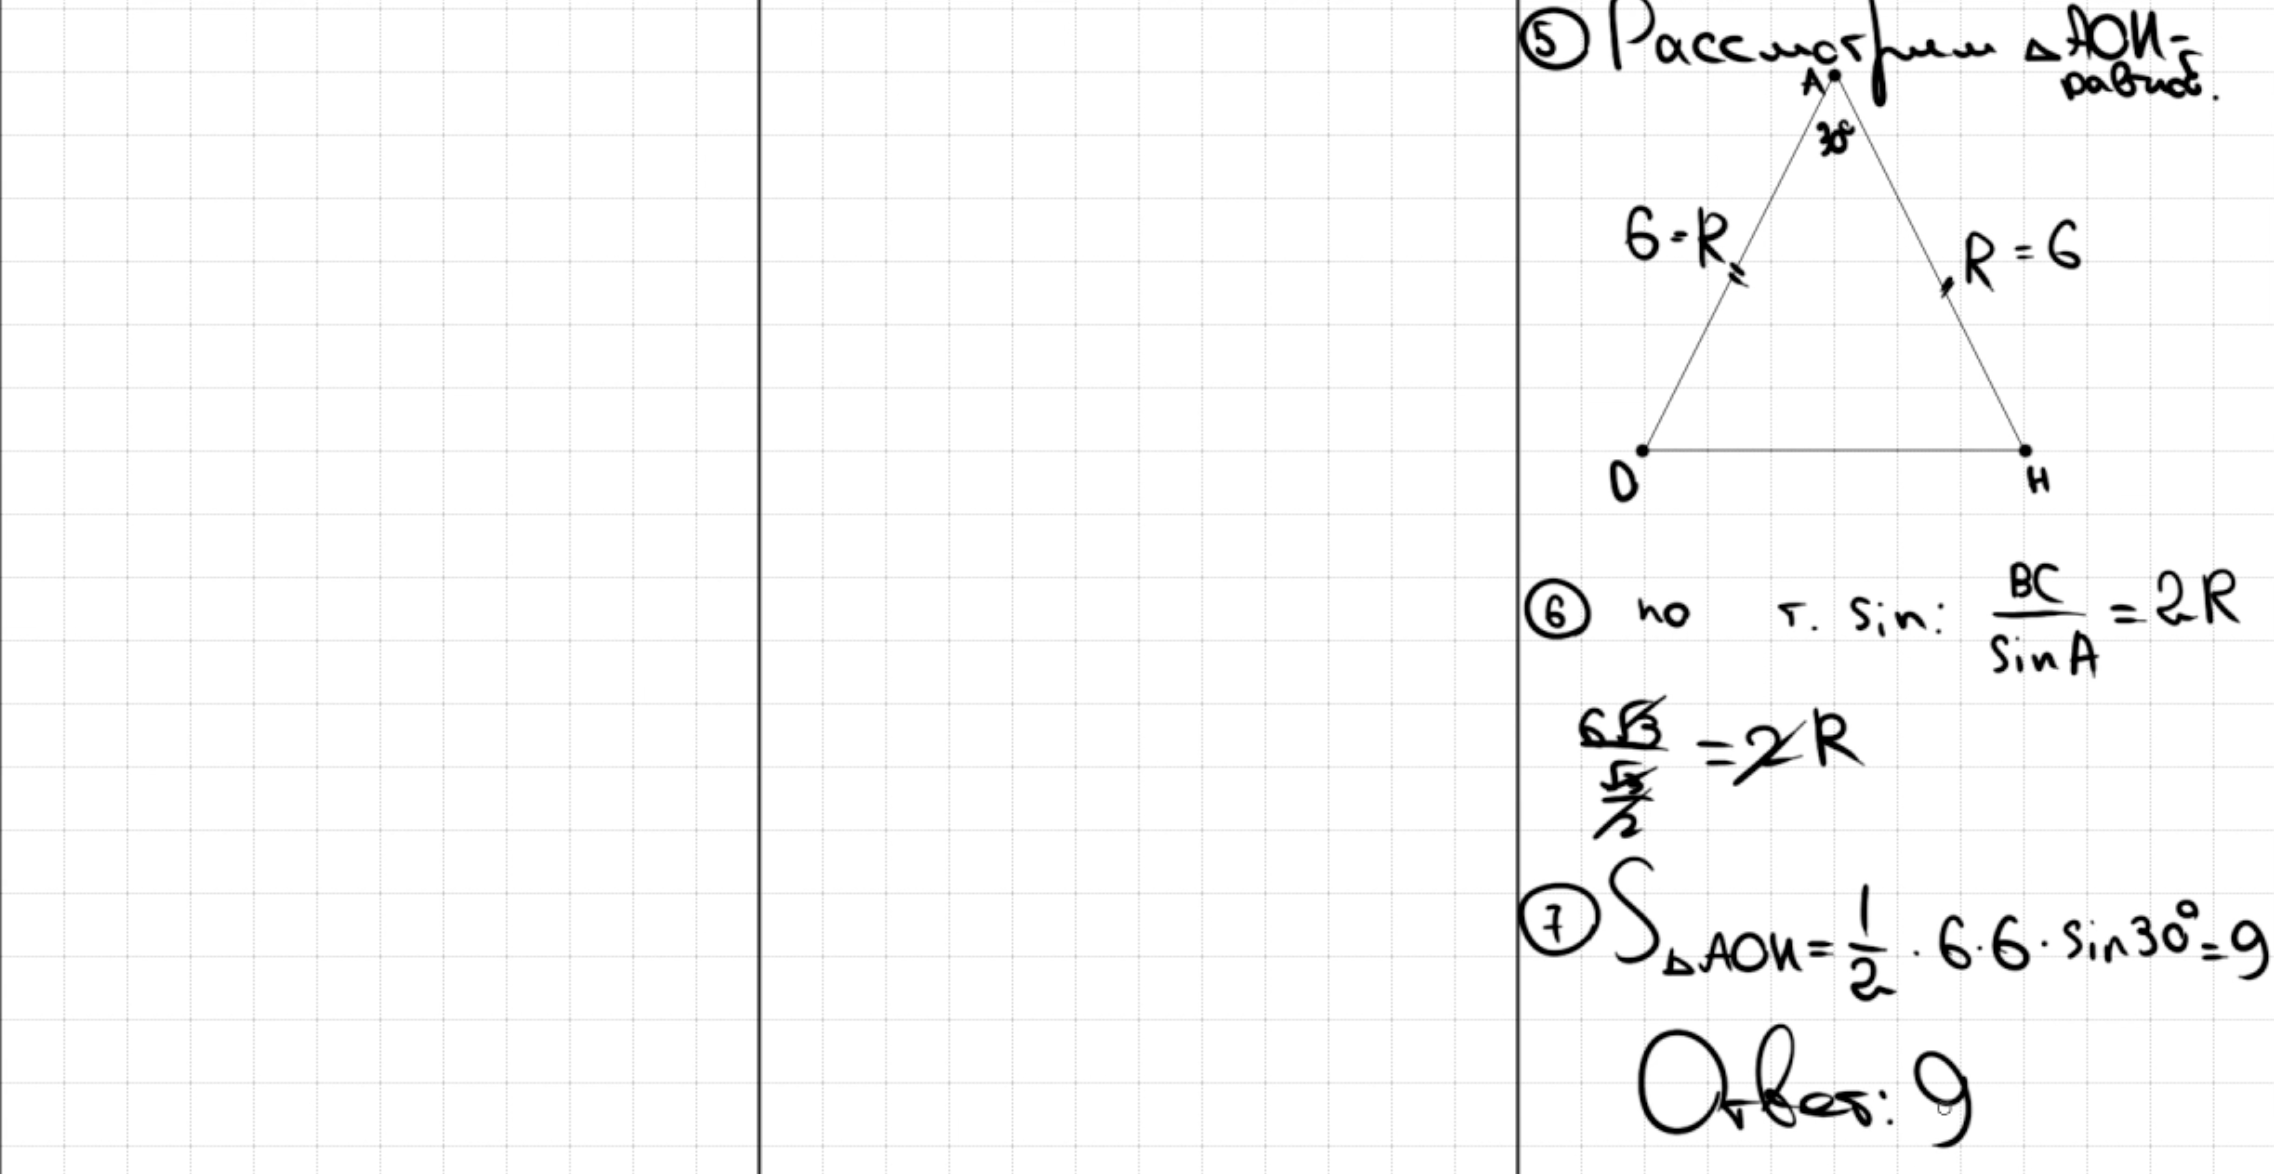 ⑤ Рассмотрим △AOH-
равноб.
A
30°
6=R
R=6
O
H
⑥ по т. sin: BC/sinA = 2R
6√3/(√3/2) = 2R
⑦ S△AOH = 1/2 · 6 · 6 · sin30° = 9
Ответ: 9